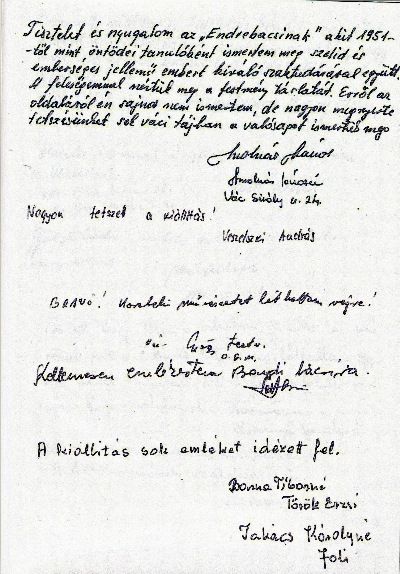 Tisztelet és nyugalom az „Endrebácsinak" akit 1951-
től mint öntödei tanulóként ismertem meg szelíd és
emberséges jellemű embert kiváló szaktudásával együtt.
A feleségemmel néztük meg a festmény tárlatát. Erről az
oldaláról én sajnos nem ismertem, de nagyon megnyerte
tetszésünket sok váci tájban a valóságot ismertük meg
Molnár János
Molnár Jánosné
Vác Sirály u. 24.
Nagyon tetszett a kiállítás!
Veszelszki András
BRAVÓ! művészetet láthattam végre!
Kellemesen emlékeztem Bandi bácsira.
A kiállítás sok emléket idézett fel.
Barna Tiborné
Török Erzsi
Takács Károlyné
Joli